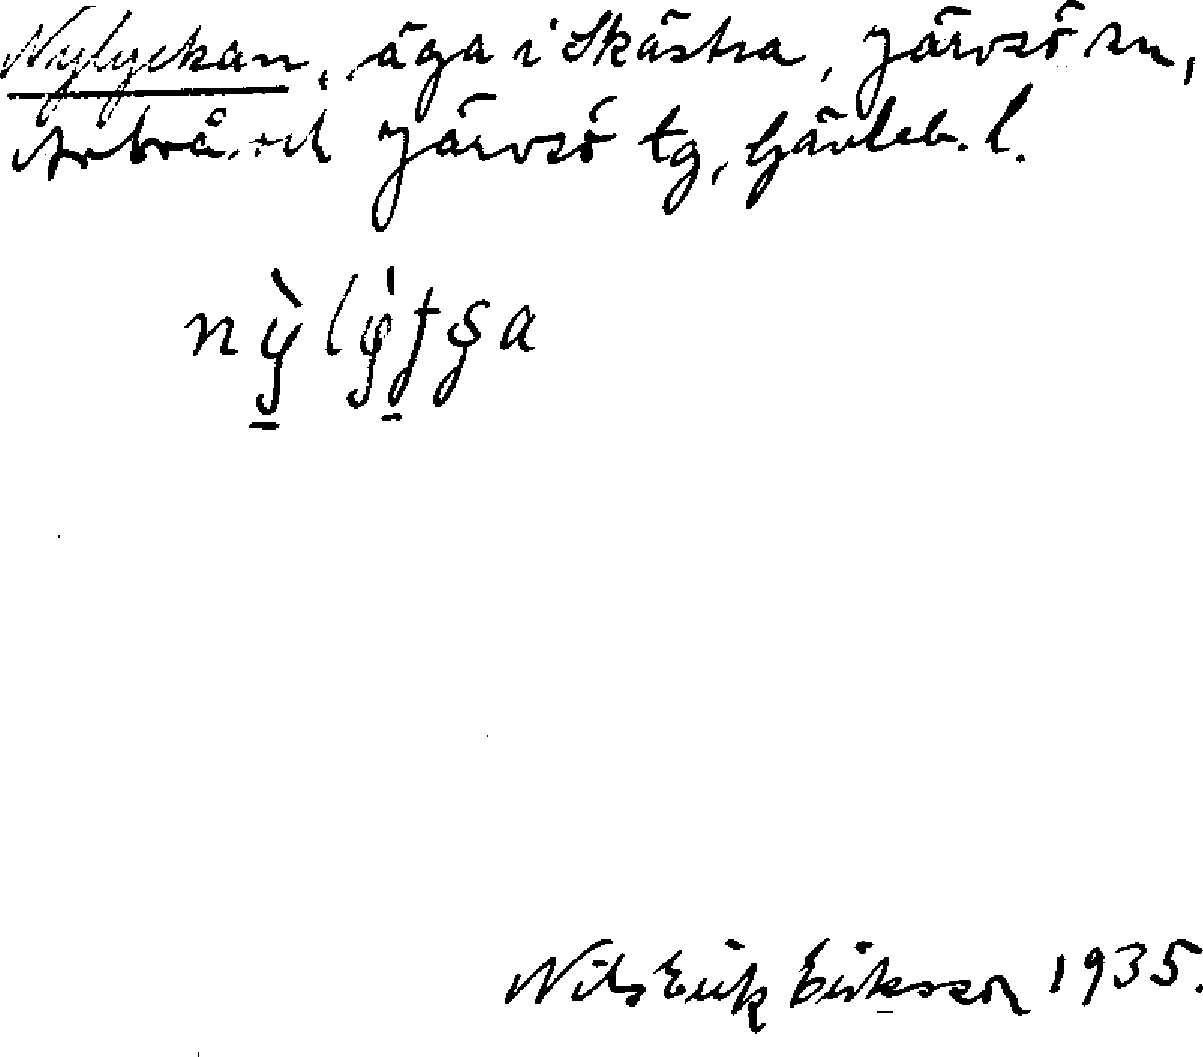 Nylyckan, äga i Skästra, Järvsö sn,
Arbrå och Järvsö tg, Gävleb. l.
Nils Erik Eriksson 1935.